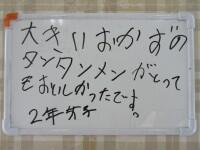 大きいおかずの
タンタンメンがとって
もおいしかったです。
2年女子